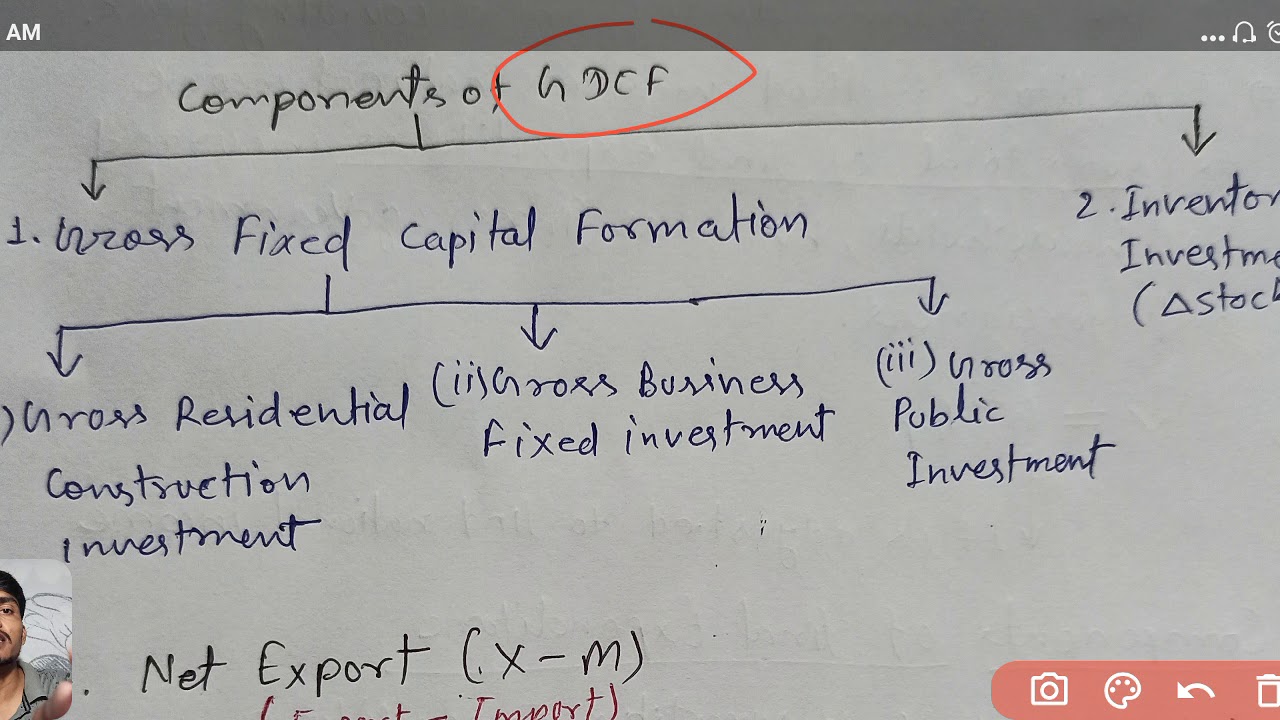 AM
Components of GDCF
1. Gross Fixed Capital Formation
2. Inventor
Investme
(ΔStock
) Gross Residential
Construction
investment
(ii) Gross Business
Fixed investment
(iii) Gross
Public
Investment
Net Export (X-M)
Import)